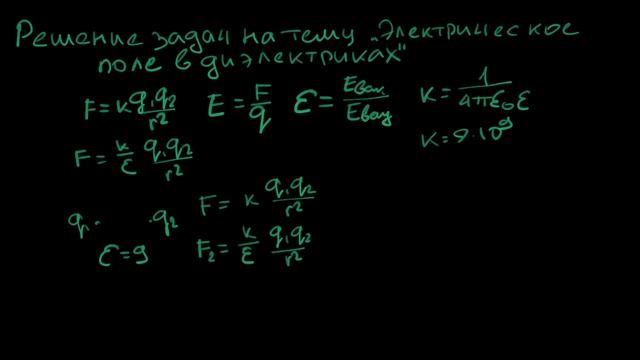 Решение задач на тему „Электрическое
поле в диэлектриках"
F = k q₁q₂/r² E = F/q ε = Eвак/Eвещ k = 1/4πε₀ε
F = k/ε q₁q₂/r² k = 9·10⁹
q₁· ·q₂ F = k q₁q₂/r²
ε = 9 F₂ = k/ε q₁q₂/r²